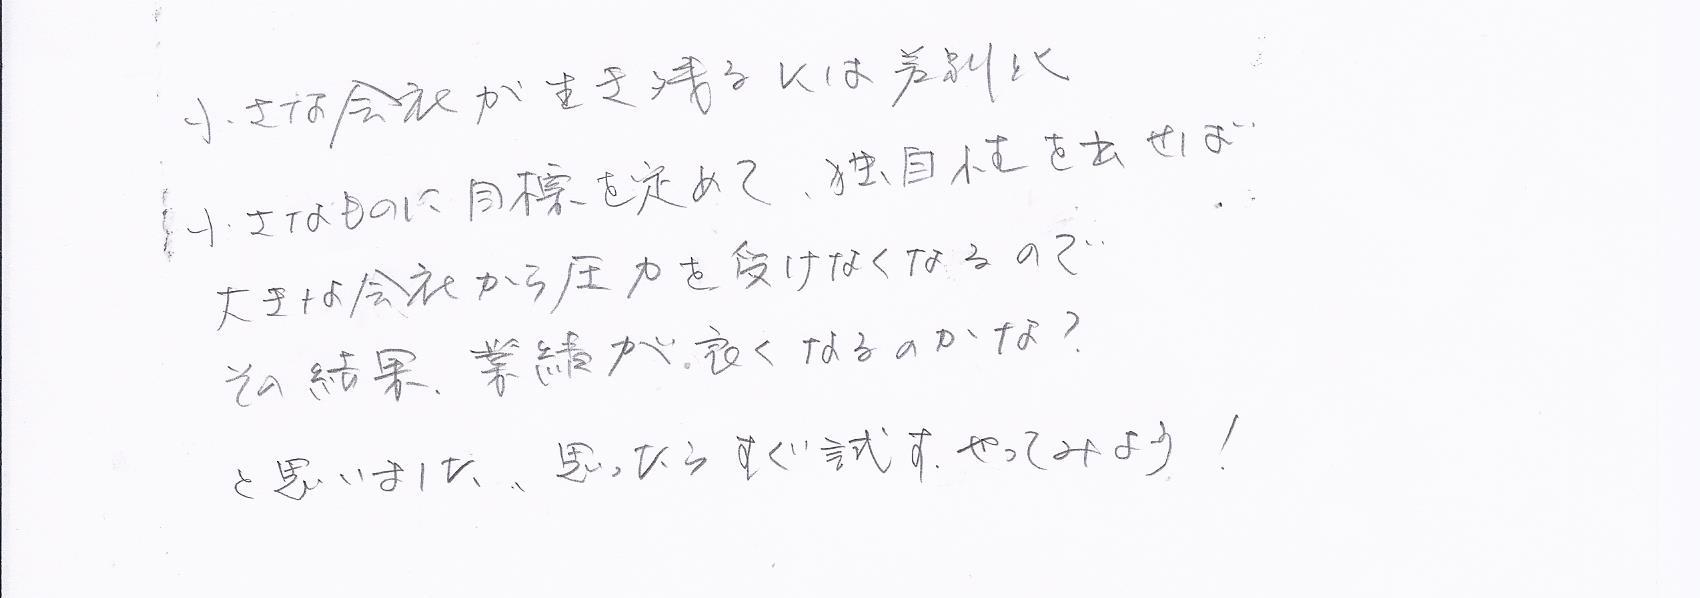 小さな会社が生き残るには差別と
小さなものに目標を定めて、独自性を出せば
大きな会社から圧力を受けなくなるので
その結果、業績が良くなるのかな?
と思いました、思ったらすぐ試す、やってみよう!